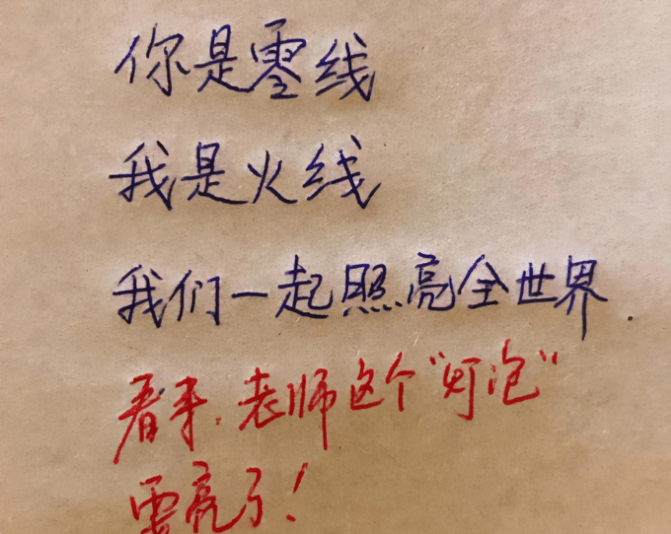 你是零线
我是火线
我们一起照亮全世界.
看来,老师这个"灯泡"
要亮了!